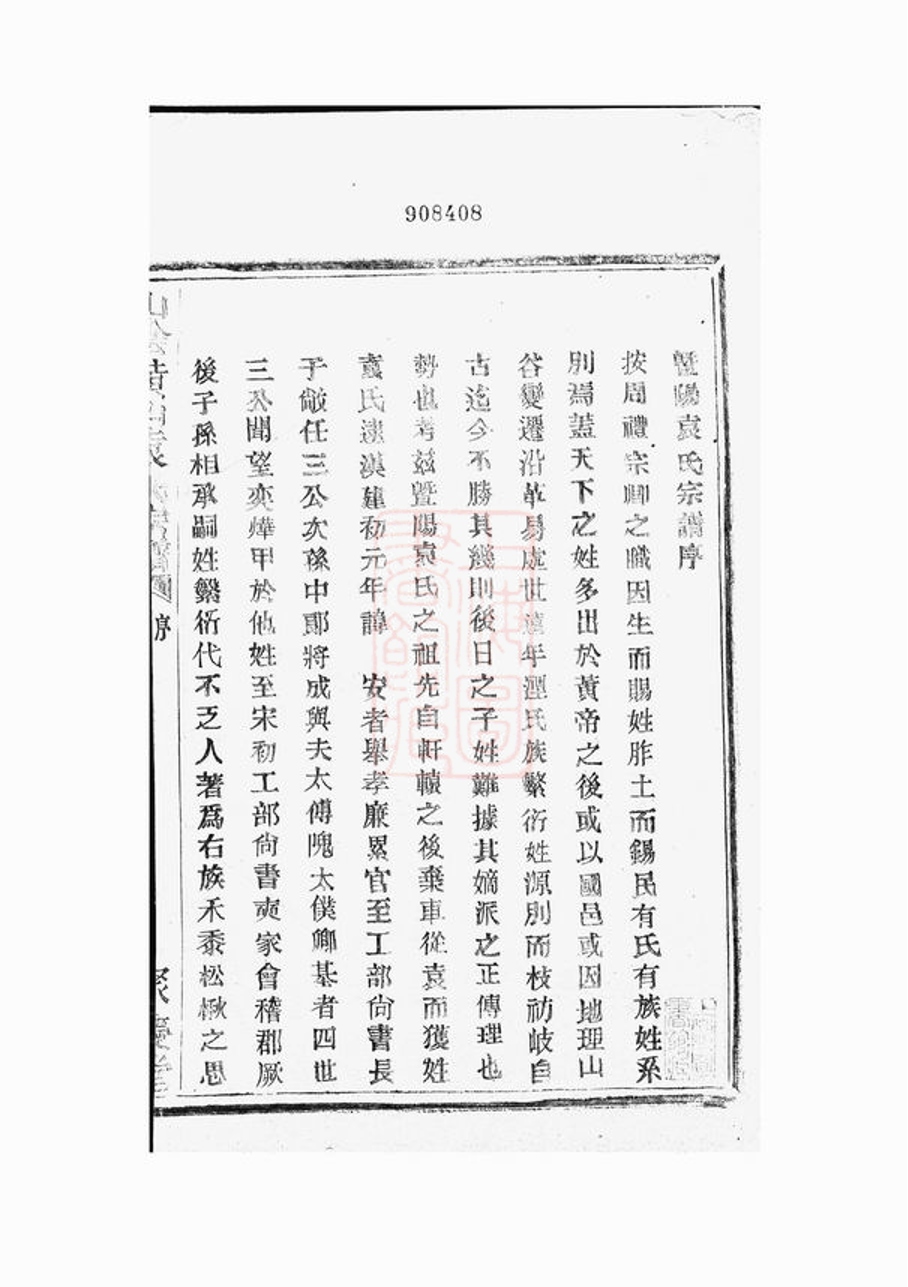 908408
暨陽袁氏宗譜序
按周禮宗卿之職因生而賜姓胙土而錫民有氏有族姓系
別焉蓋天下之姓多出於黃帝之後或以國邑或因地理山
谷變遷沿革易處世遠年湮氏族繁衍姓源別而枝舫岐自
古迄今不勝其幾則後日之子姓難據其嫡派之正傳理也
勢也考茲暨陽袁氏之祖先自軒轅之後棄車從袁而獲姓
袁氏逮漢建初元年諱 安者舉孝廉累官至工部尙書長
子敞任三公次孫中郎將成與夫太傅隗太僕卿基者四世
三公聞望奕燁甲於他姓至宋初工部尙書奭家會稽郡厥
後子孫相承嗣姓繁衍代不乏人著爲右族禾黍松楸之思
序
上海圖書館藏